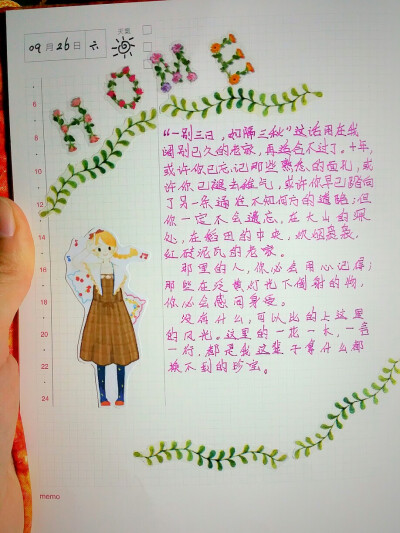 09月26日 六 天气
HOME
6
8
10
12
14
16
18
20
22
24
memo
"一别三日,如隔三秋"这话用在我
阔别已久的老家,再适合不过了。十年,
或许你已忘记那些熟悉的面孔,或
许你已褪去稚气,或许你早已踏向
了另一条通往不知何方的道路;但
你一定不会遗忘,在大山的深
处,在稻田的中央,炊烟袅袅,
红砖泥瓦的老家。
那里的人,你必会用心记得;
那些在泛黄灯光下倒射的物,
你必会感同身受。
没有什么,可以比的上这里
的风光。这里的一花一木,一言
一行,都是我这辈子拿什么都
换不到的珍宝。